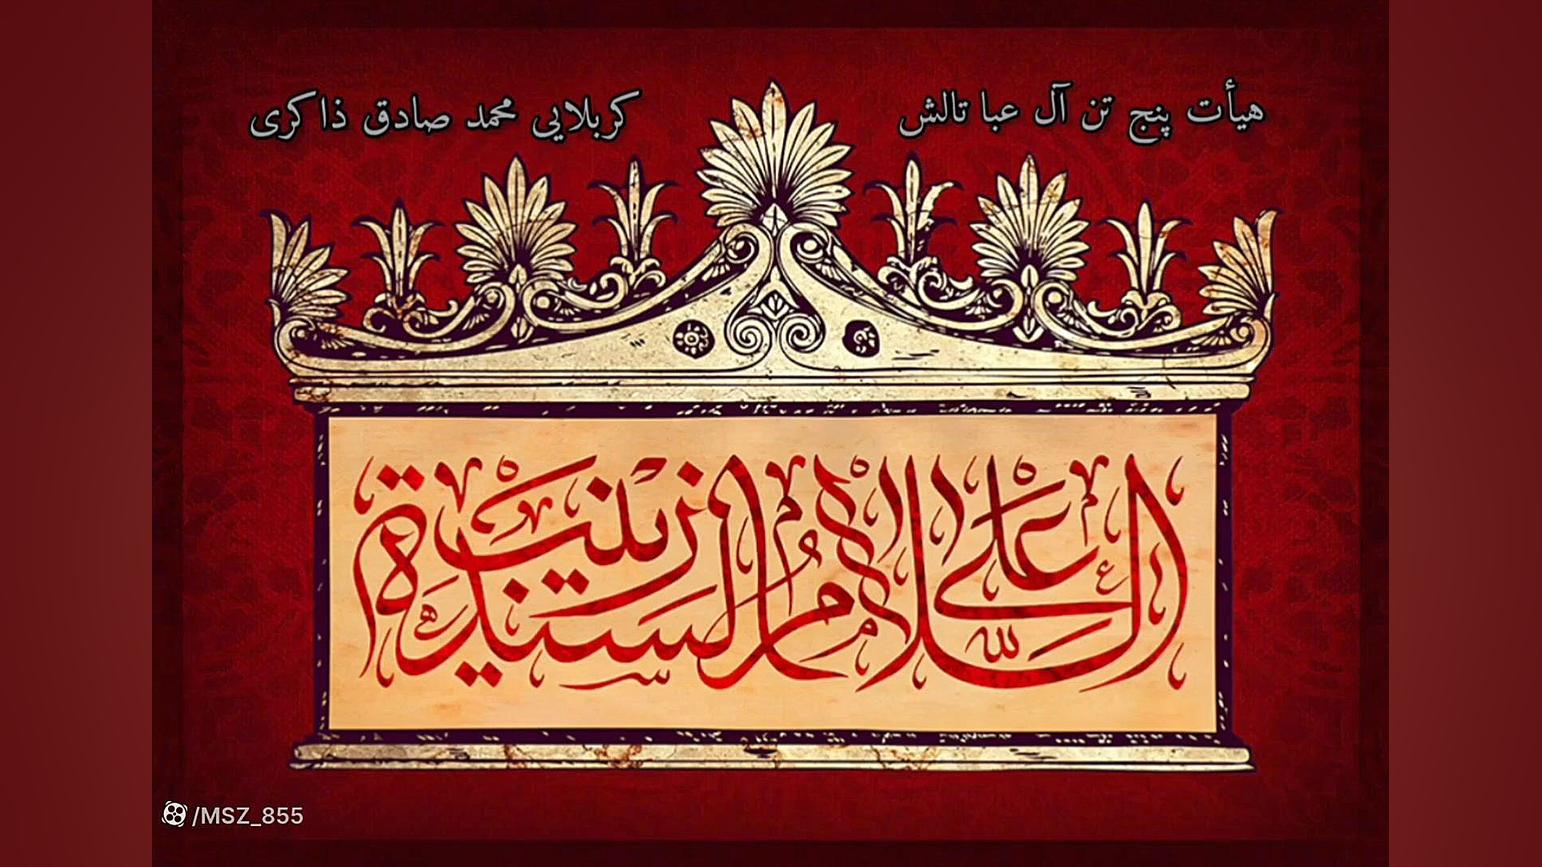 هیأت پنج تن آل عبا تالش
کربلایی محمد صادق ذاکری
السَّلامُ عَلَی السَیِّدَة زینب
/MSZ_855